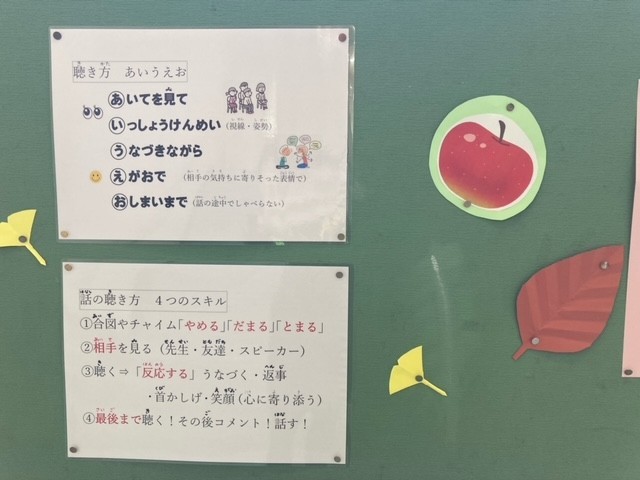 聴き方 あいうえお
あいてを見て
いっしょうけんめい（視線・姿勢）
うなづきながら
えがおで （相手の気持ちに寄りそった表情で）
おしまいまで（話の途中でしゃべらない）
話の聴き方 4つのスキル
①合図やチャイム「やめる」「だまる」「とまる」
②相手を見る（先生・友達・スピーカー）
③聴く⇒「反応する」うなづく・返事
・首かしげ・笑顔（心に寄り添う）
④最後まで聴く！その後コメント！話す！